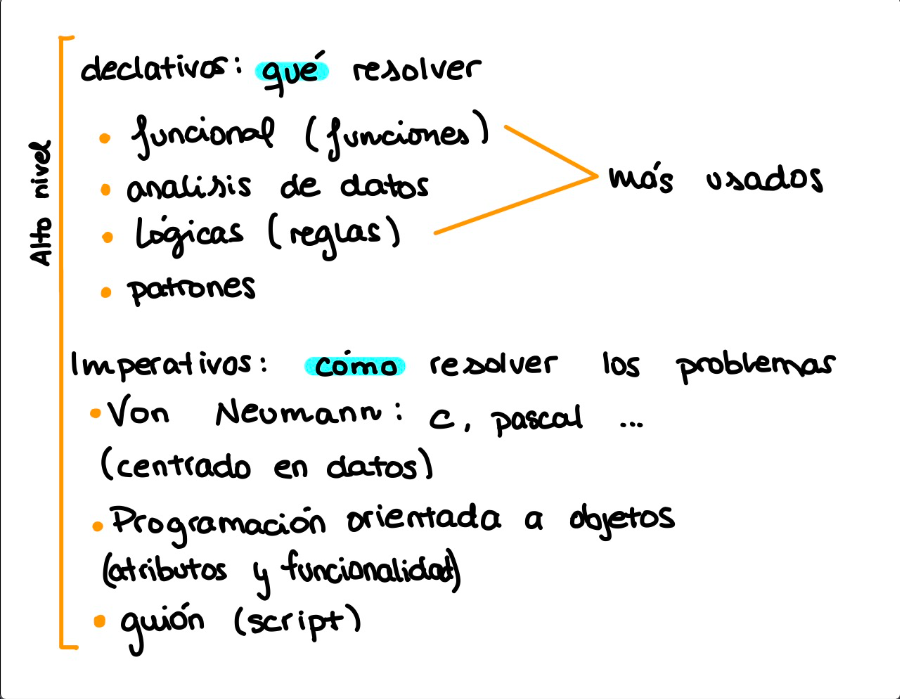 declativos: qué resolver
• funcional (funciones)
• analisis de datos
• lógicas (reglas)
• patrones
más usados
Alto nivel
Imperativos: cómo resolver los problemas
• Von Neumann: C, pascal ...
(centrado en datos)
• Programación orientada a objetos
(atributos y funcionalidad)
• guión (script)